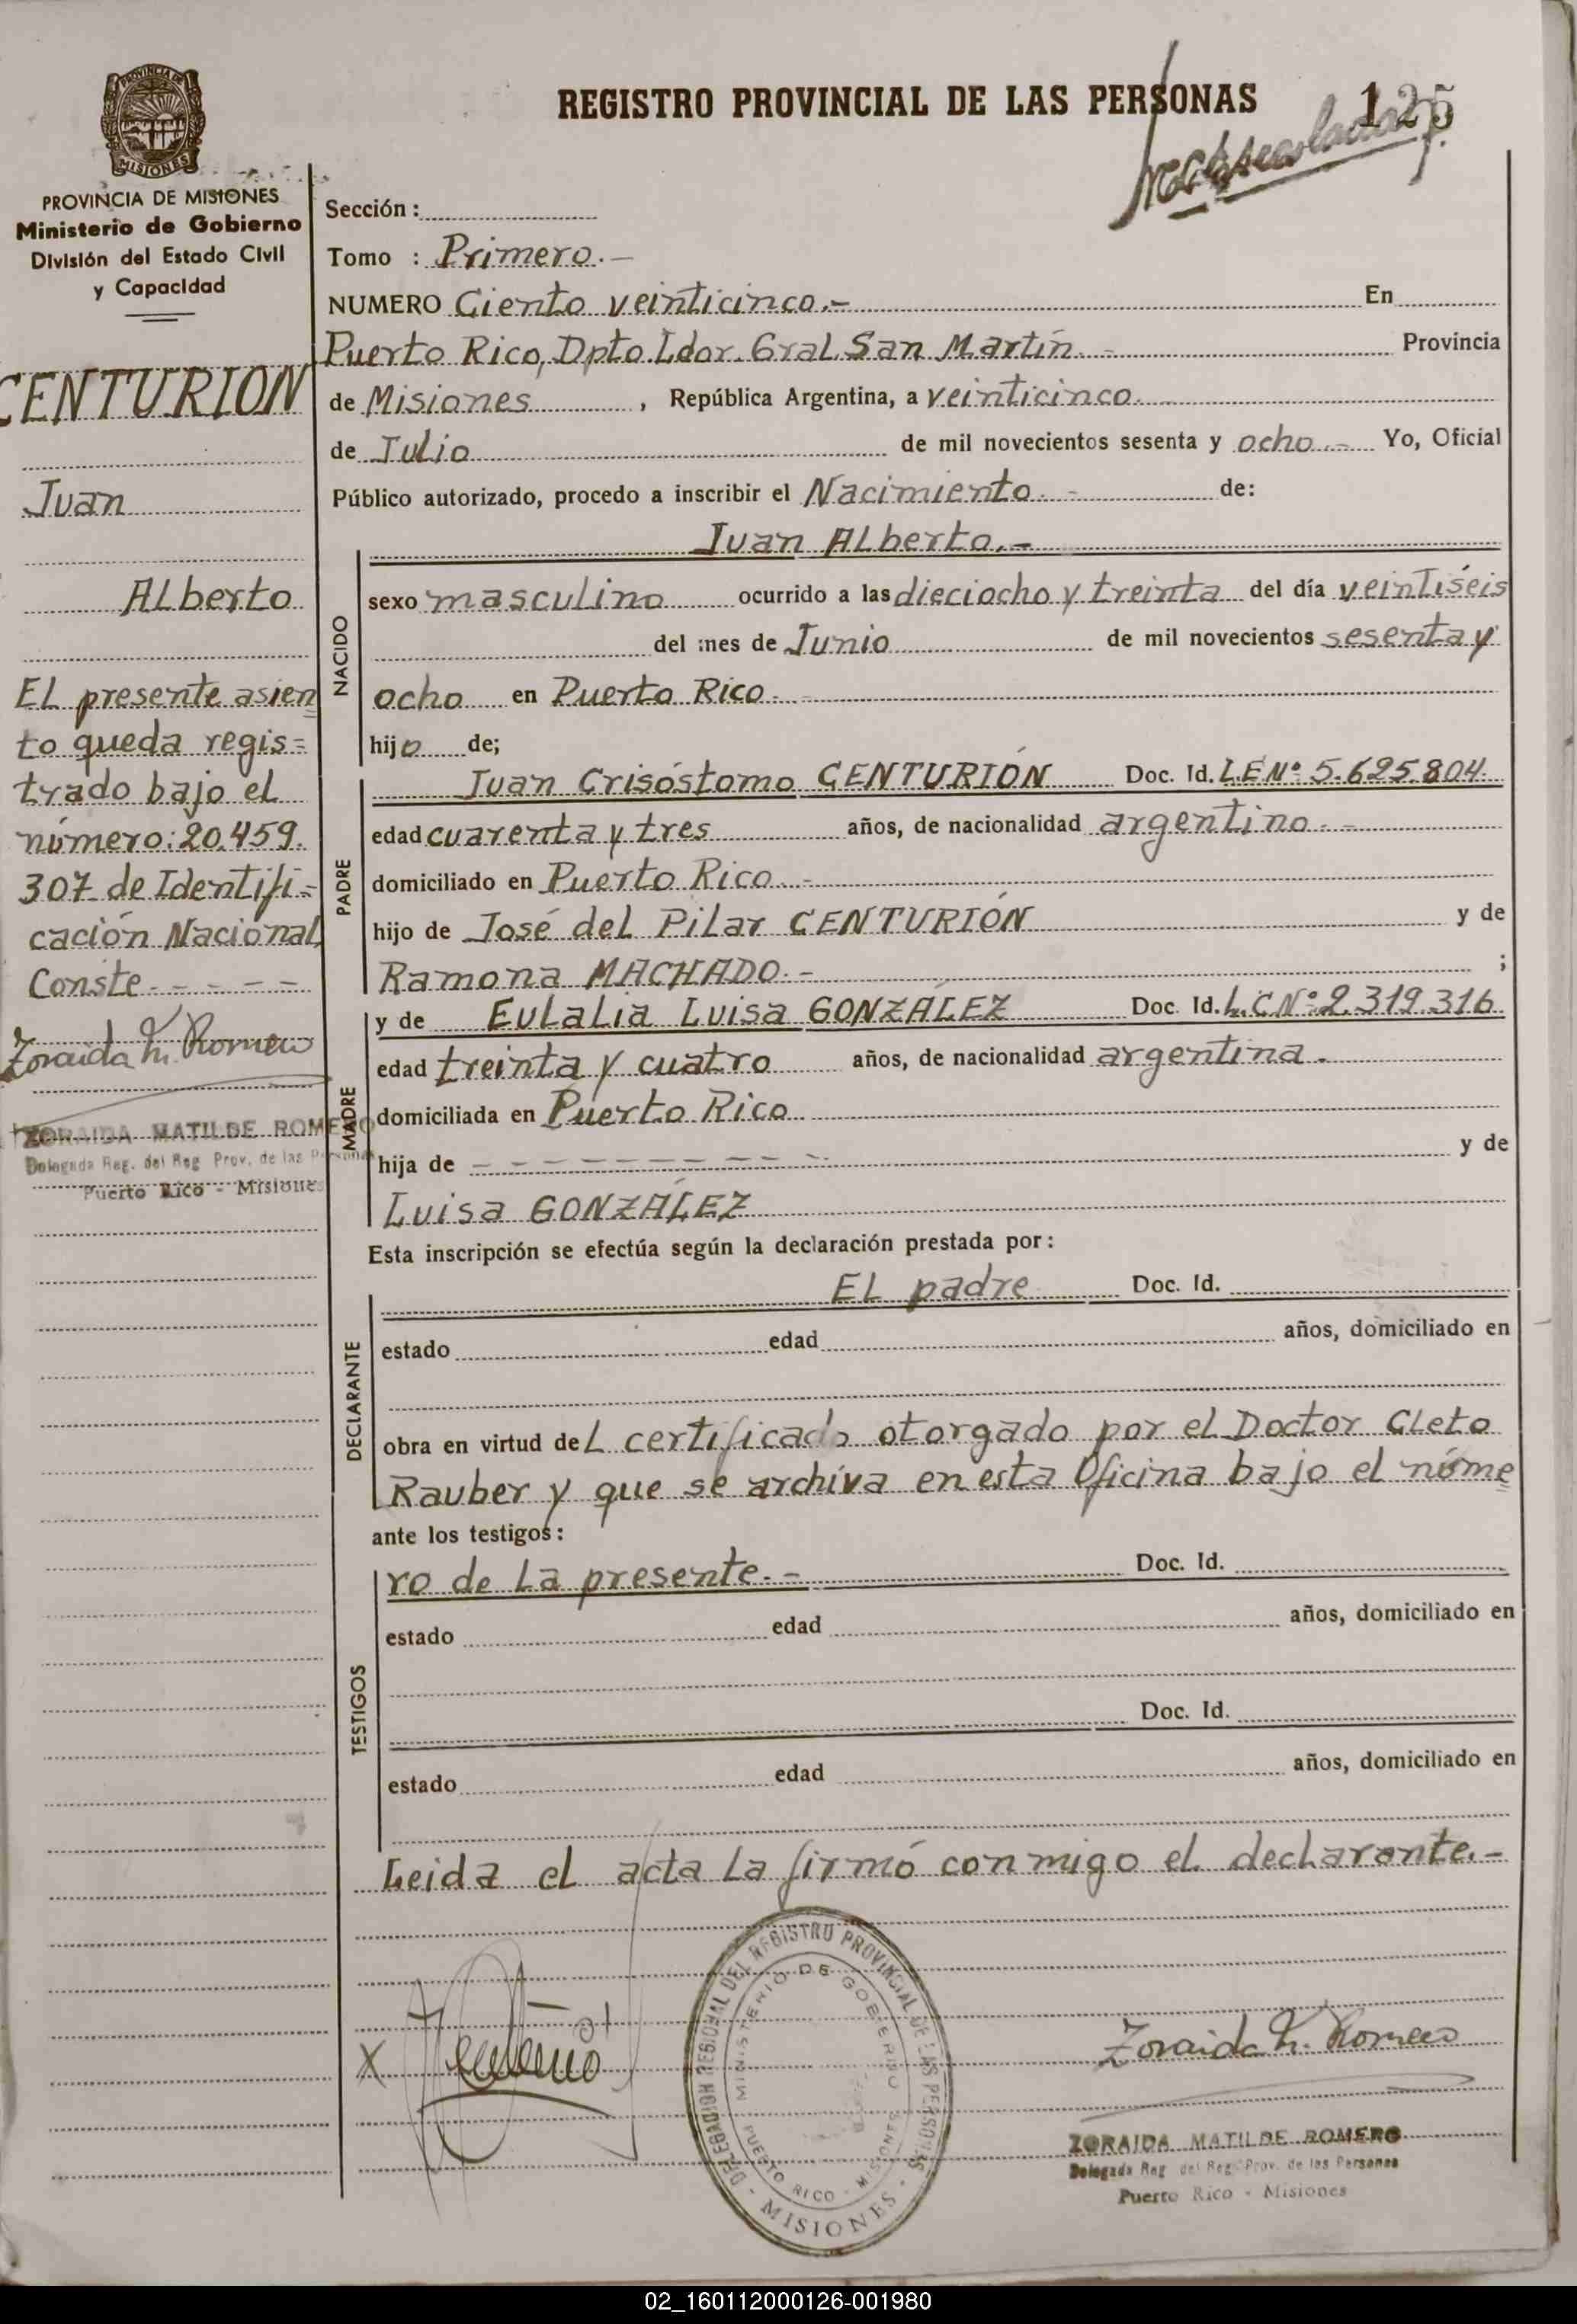 PROVINCIA DE
MISIONES
REGISTRO PROVINCIAL DE LAS PERSONAS
125
PROVINCIA DE MISIONES
Ministerio de Gobierno
División del Estado Civil
y Capacidad
CENTURION
Juan
Alberto
EL presente asien
to queda regis=
trado bajo el
número: 20.459.
307 de Identifi=
cación Nacional,
Conste.- - - - -
Zoraida M. Romero
ZORAIDA MATILDE ROMERO
Delegada Reg. del Reg Prov. de las Personas
Puerto Rico - Misiones
Sección :
Tomo : Primero.-
NUMERO Ciento veinticinco.- En
Puerto Rico, Dpto. Ldor. Gral. San Martín.- Provincia
de Misiones , República Argentina, a veinticinco.
de Julio de mil novecientos sesenta y ocho.- Yo, Oficial
Público autorizado, procedo a inscribir el Nacimiento.- de:
NACIDO
Juan ALberto.-
sexo masculino ocurrido a las dieciocho y treinta del día veintiséis
del mes de Junio de mil novecientos sesenta y
ocho en Puerto Rico.-
hijo de;
PADRE
Juan Crisóstomo CENTURIÓN Doc. Id. L.E.Nº 5.625.804.
edad cuarenta y tres años, de nacionalidad argentino.-
domiciliado en Puerto Rico.-
hijo de José del Pilar CENTURIÓN y de
Ramona MACHADO.- ;
MADRE
y de Eulalia Luisa GONZÁLEZ Doc. Id. L.C.Nº 2.319.316.
edad treinta y cuatro años, de nacionalidad argentina.
domiciliada en Puerto Rico
hija de - - - - - - - - - y de
Luisa GONZÁLEZ
Esta inscripción se efectúa según la declaración prestada por:
DECLARANTE
EL padre Doc. Id.
estado edad años, domiciliado en
obra en virtud deL certificado otorgado por el Doctor Cleto
Rauber y que se archiva en esta Oficina bajo el núme
ante los testigos:
TESTIGOS
ro de La presente.- Doc. Id.
estado edad años, domiciliado en
Doc. Id.
estado edad años, domiciliado en
Leida el acta La firmó conmigo el declarante.-
X
DELEGACION REGIONAL DEL REGISTRO PROVINCIAL DE LAS PERSONAS
MINISTERIO DE GOBIERNO
PUERTO RICO - MISIONES
- MISIONES -
Zoraida M. Romero
ZORAIDA MATILDE ROMERO
Delegada Reg del Reg. Prov. de las Personas
Puerto Rico - Misiones
02_160112000126-001980